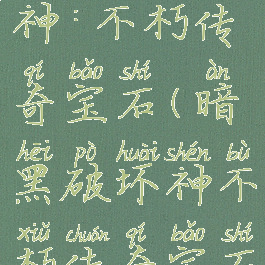 神：不朽传
qí bǎo shí àn
奇宝石（暗
hēi pò huài shén bù
黑破坏神不
xiǔ chuán qí bǎo shí
朽传奇宝石